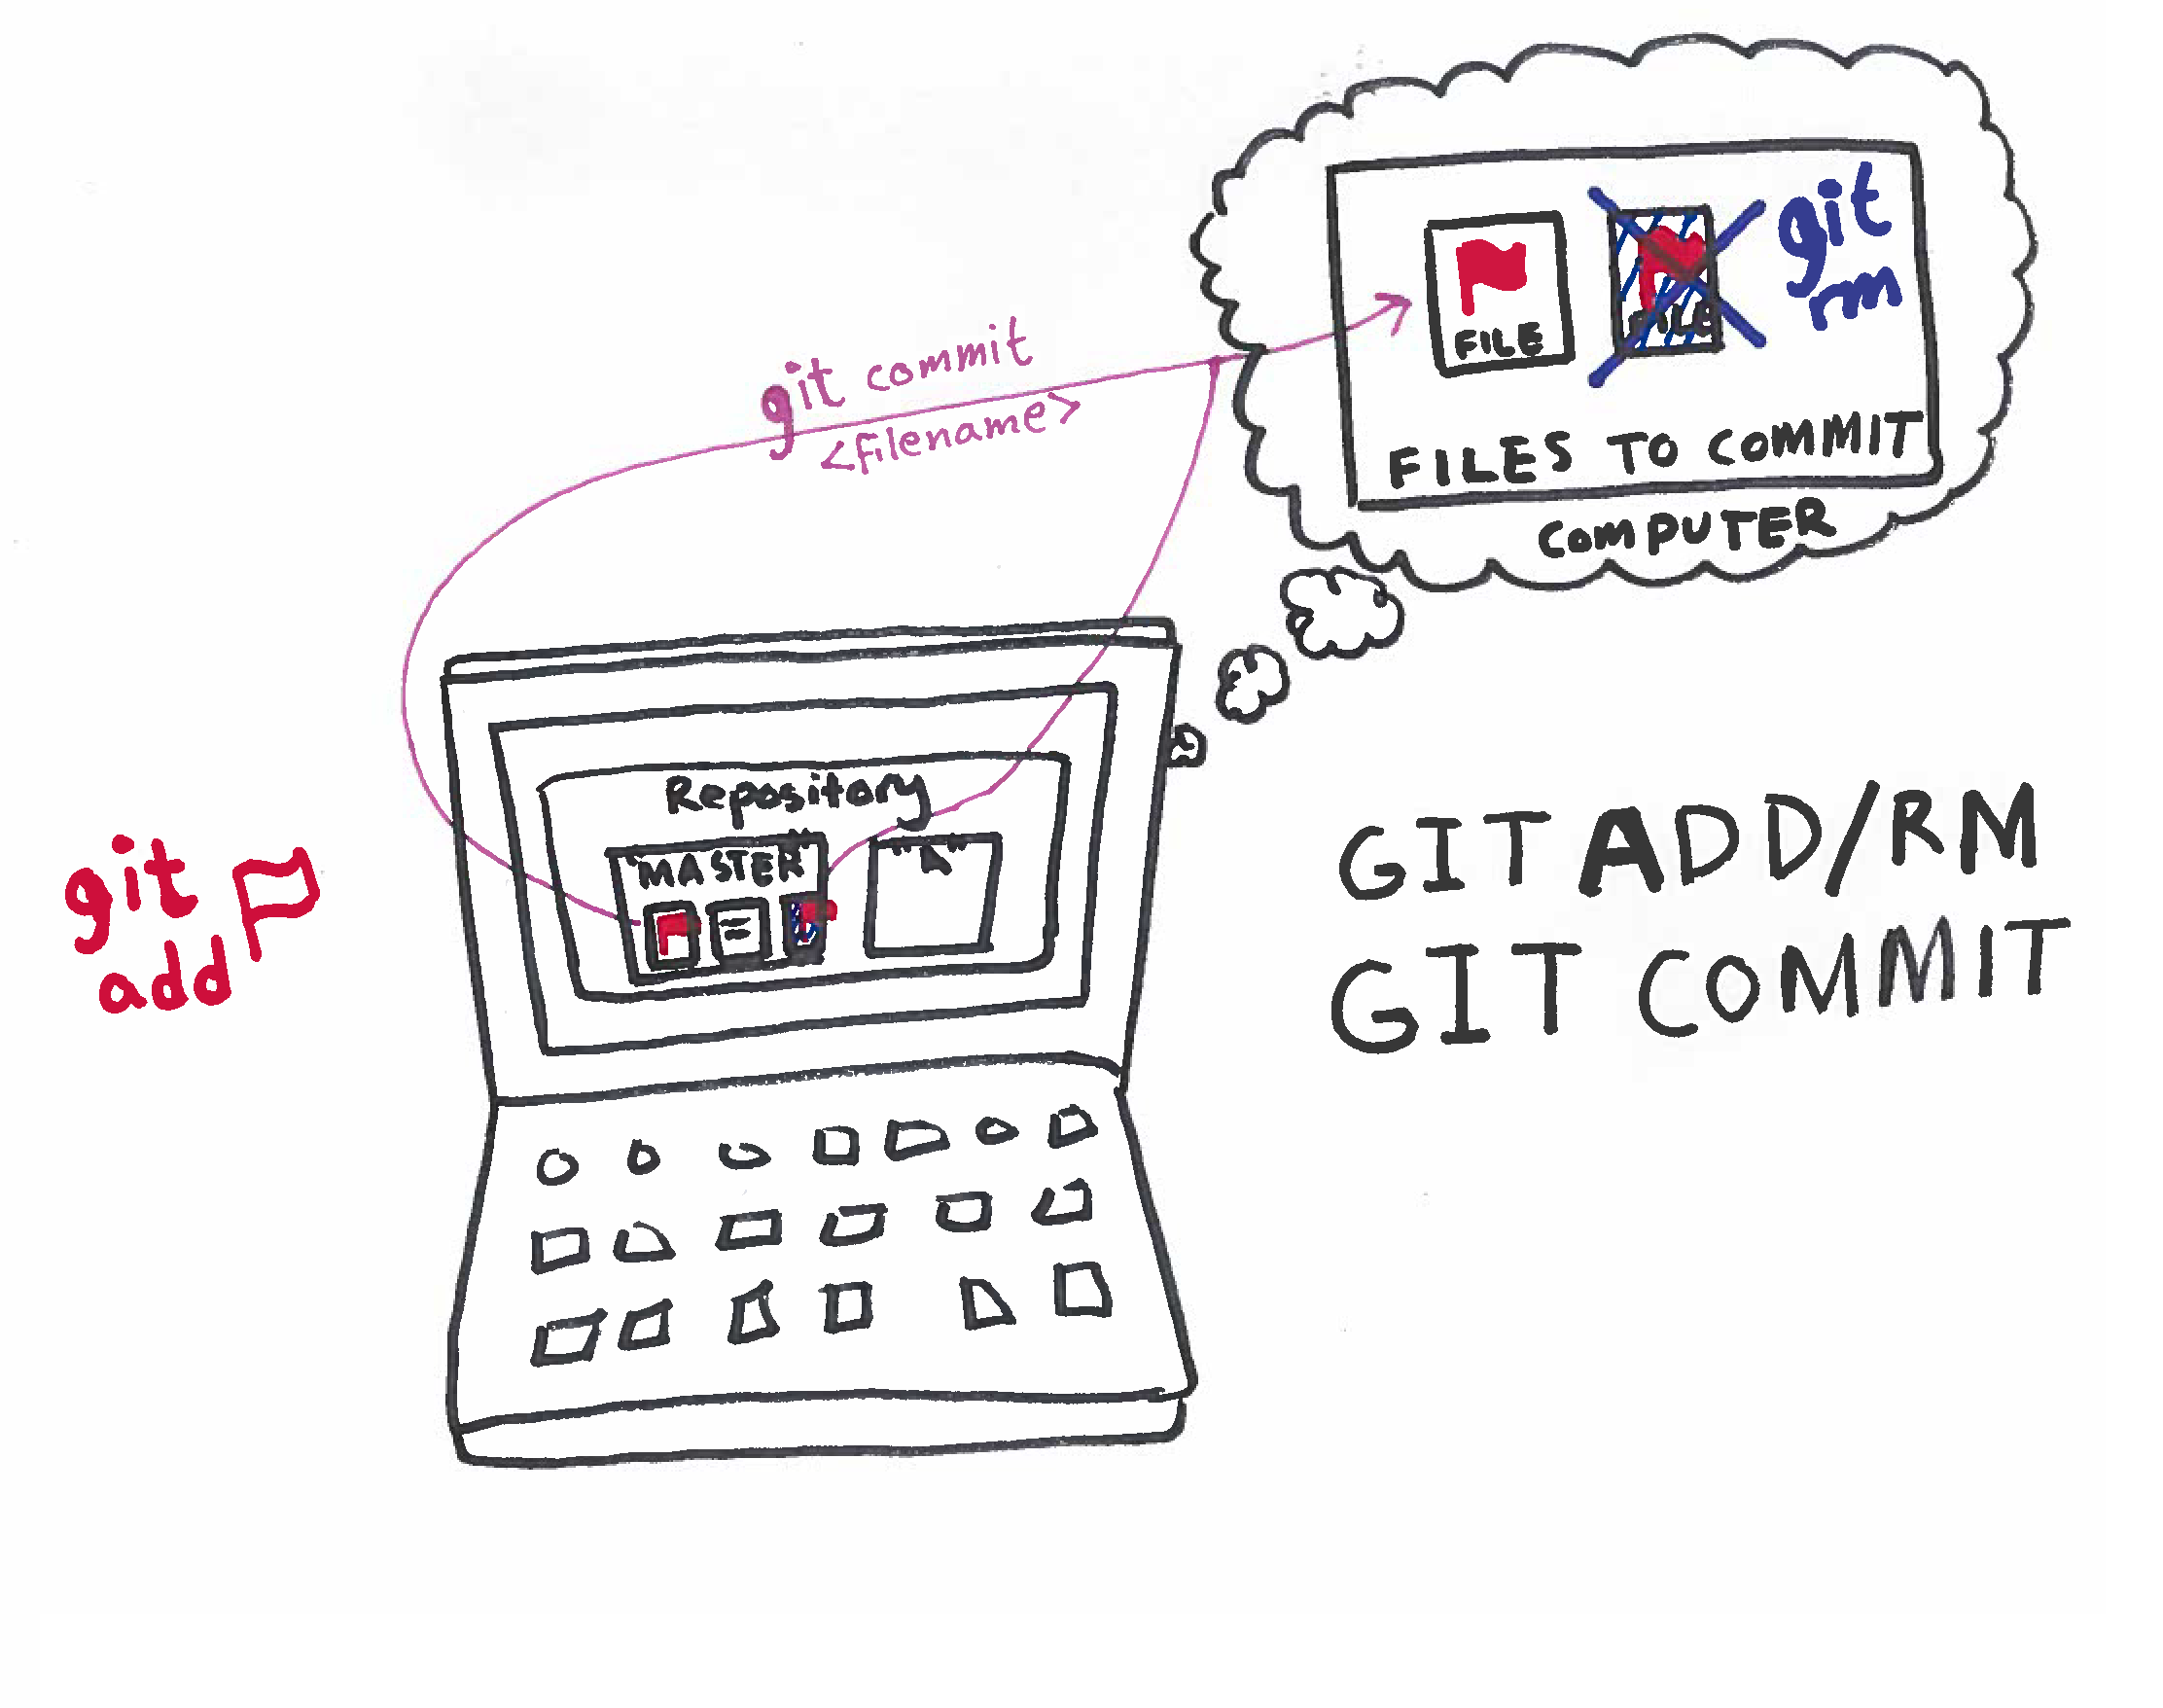 git
rm
FILE
FILE
FILES TO COMMIT
COMPUTER
git commit
<filename>
Repository
"MASTER"
"A"
git
add
GIT ADD/RM
GIT COMMIT